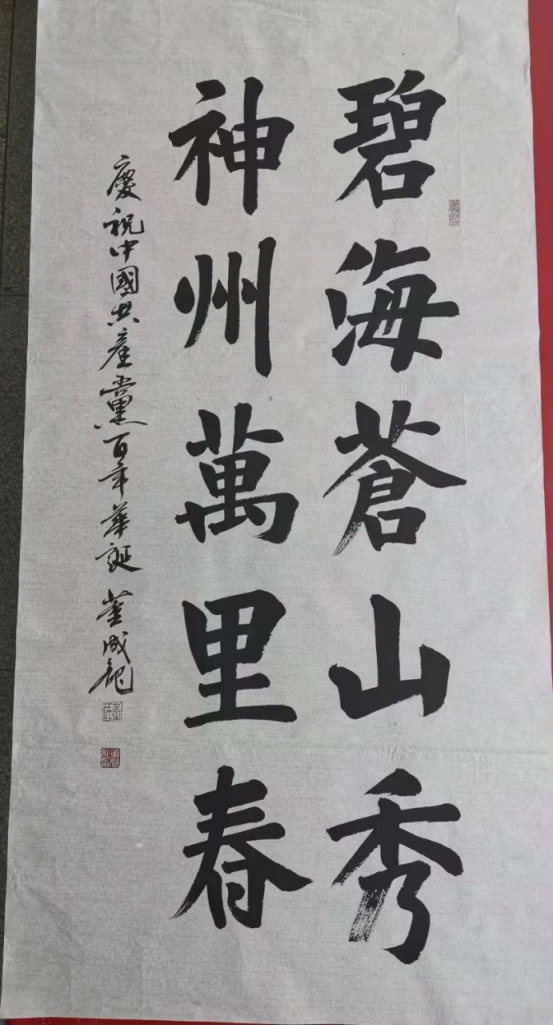 碧海蒼山秀
神州萬里春
慶祝中國共產黨百年華誕 董成